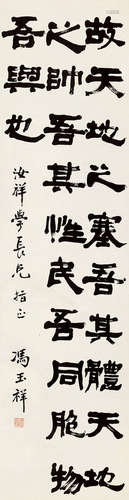 故天地之塞吾其體天地
之帥吾其性民吾同胞物
吾與也
汝祥學長兄指正
馮玉祥